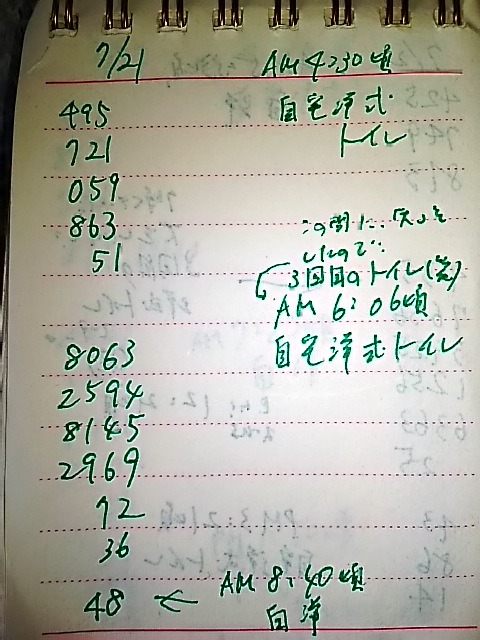 7/21 AM 4:30頃
495 自宅洋式
721 トイレ
059
863 この間に、
51 したので…
3回目のトイレ(笑)
AM 6:06頃
8063 自宅洋式トイレ
2594
8145
2969
72
36
48 ← AM 8:40頃
自洋